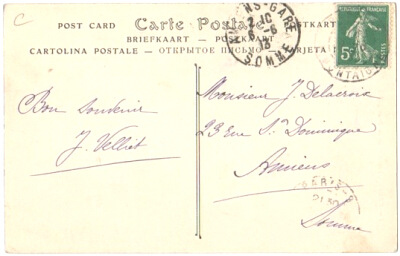 C
POST CARD Carte Postale POSTKARTE
BRIEFKAART — POSTKORT
CARTOLINA POSTALE — ОТКРЫТОЕ ПИСЬМО — TARJETA
AMIENS-GARE
SOMME
REPUBLIQUE FRANÇAISE
5c
POSTES
Bon souvenir
J. Velliet
Monsieur J. Delacroix
23 Rue St Dominique
Amiens
PARIS
21 30
Somme